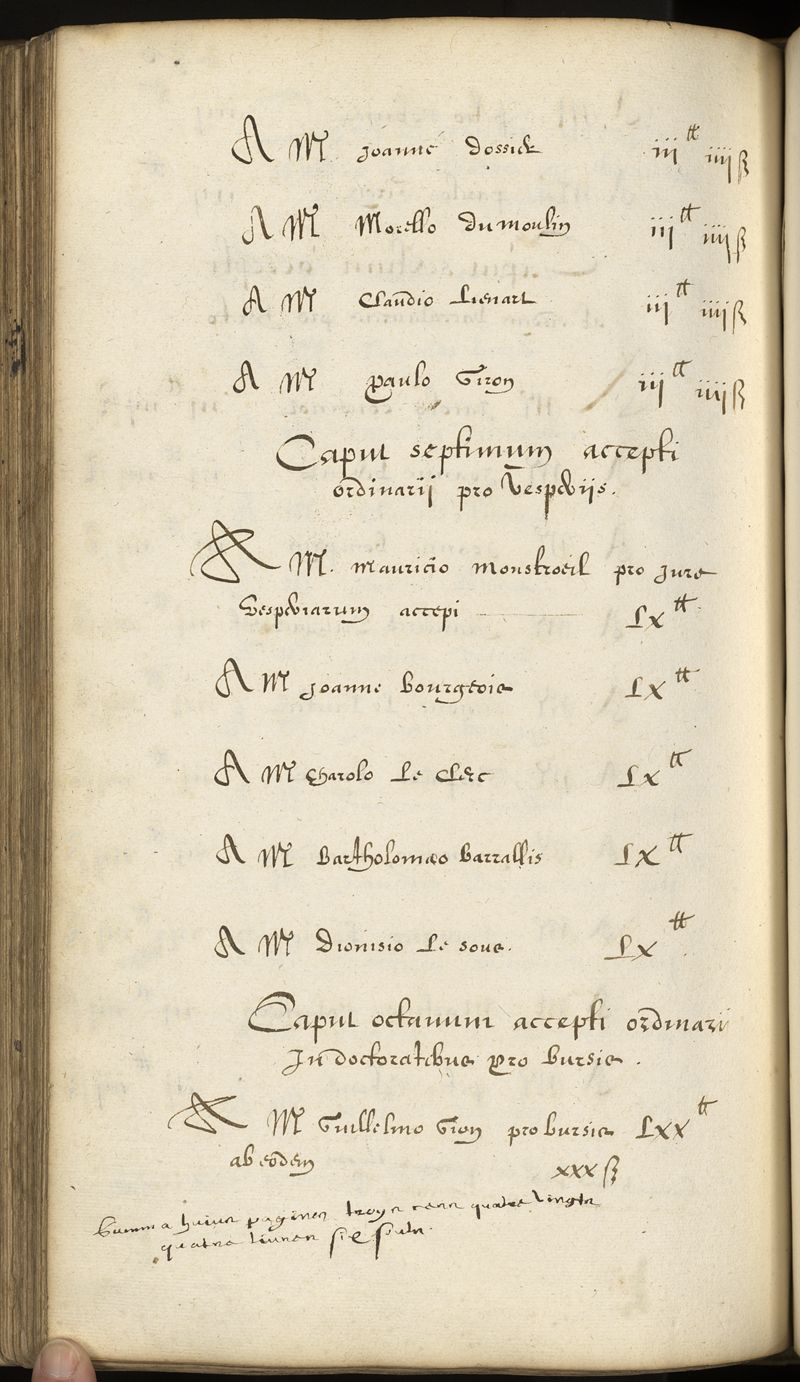 A M Joanne Dossier iij tt iiij ß
A M Morello Dumoulin iij tt iiij ß
A M Claudio Lienart iij tt iiij ß
A M Paulo Giron iij tt iiij ß
Caput septimum accepti
ordinarij pro Vesperiis.
A M. Mauricio Monstroeil pro Jure
Vesperiarum accepi Lx tt
A M Joanne Bourgeois Lx tt
A M Charolo Le Clerc Lx tt
A M Bartholomæo Barrallis Lx tt
A M Dionisio Le soue. Lx tt
Caput octauum accepti ordinari
In doctoratibus pro Bursis.
A M Guillelmo Gron pro bursis Lxx tt
ab eodem xxx ß
Summa huius pagine troys cens quatre vingts
quatre liures six souls.